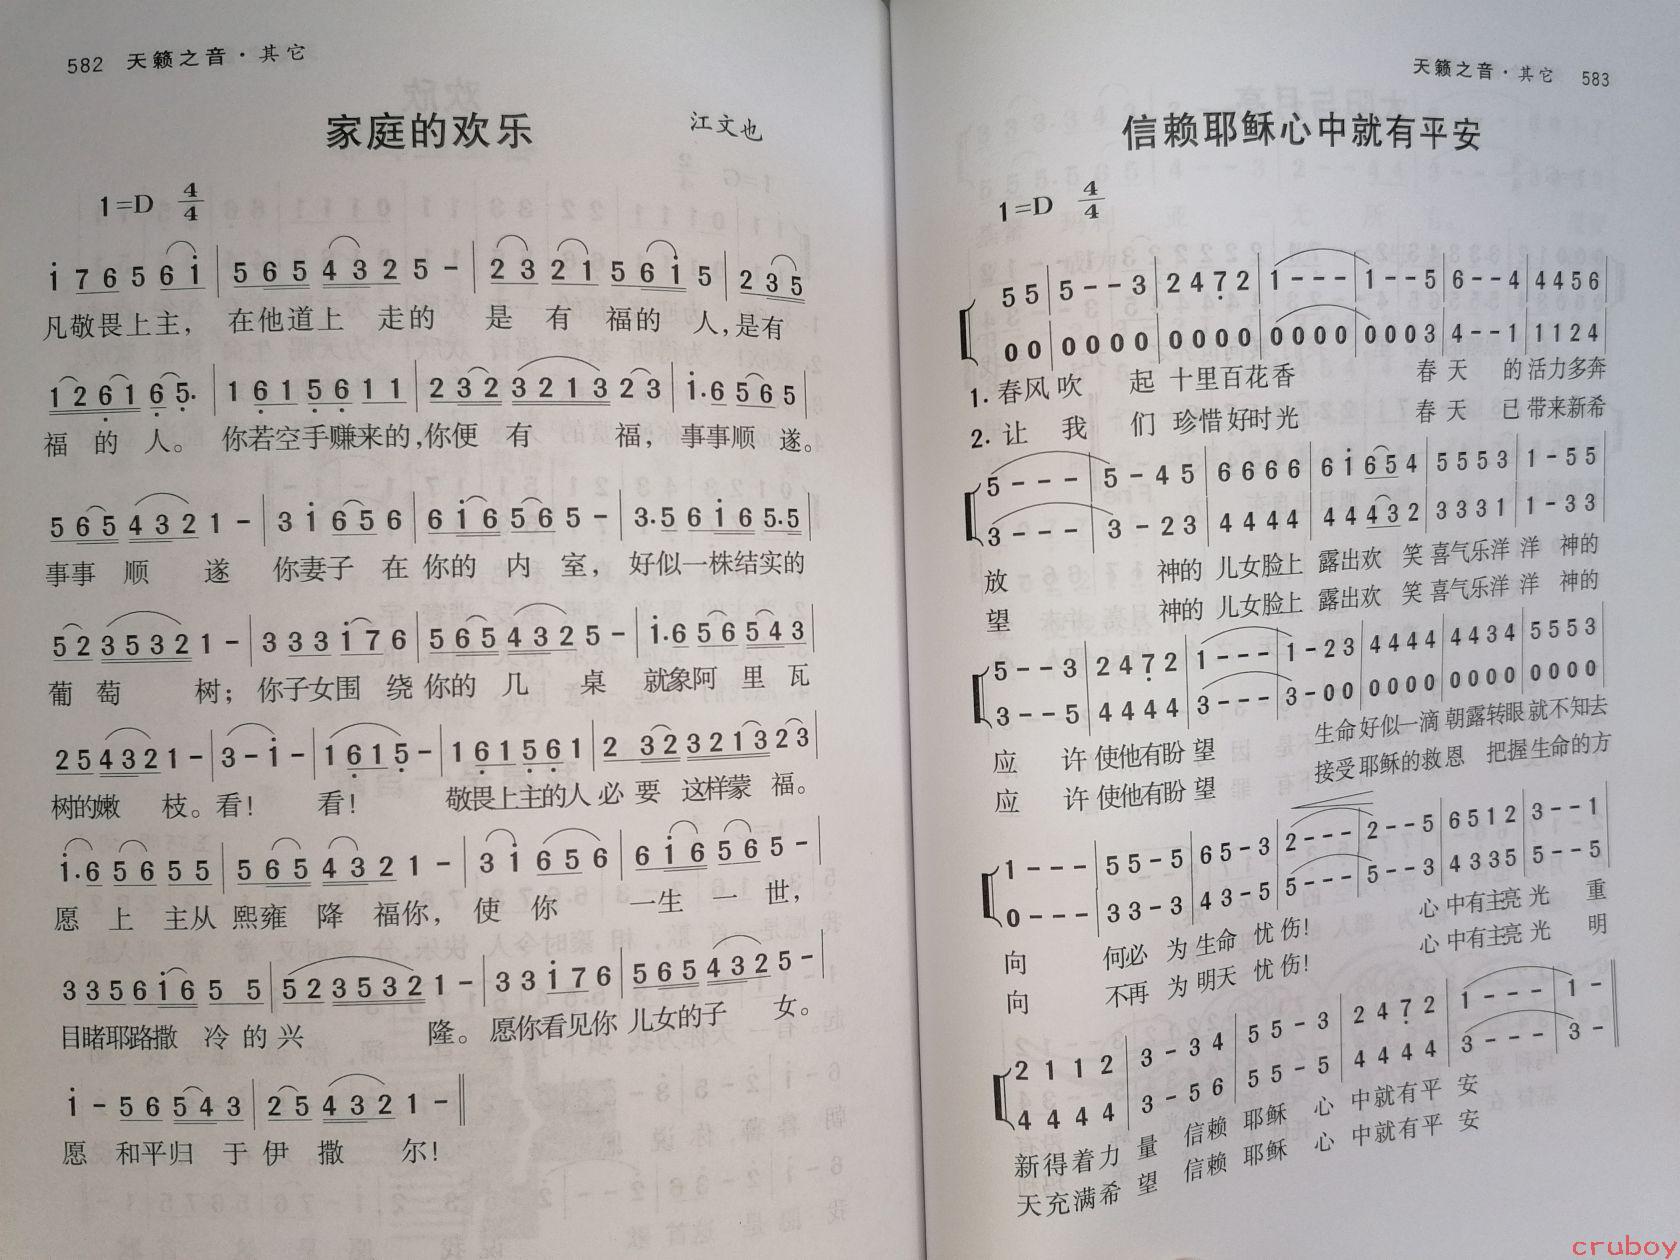 582 天籁之音·其它
家庭的欢乐
江文也
1=D 4/4
i 7 6 5 6 i | 5 6 5 4 3 2 5 - | 2 3 2 1 5 6 i 5 | 2 3 5
凡敬畏上主， 在他道上 走的 是 有 福的 人，是有
1 2 6 1 6 5. | 1 6 1 5 6 1 1 | 2 3 2 3 2 1 3 2 3 | i. 6 5 6 5
福 的 人。 你若空手赚来的，你便 有 福， 事事顺 遂。
5 6 5 4 3 2 1 - | 3 i 6 5 6 | 6 i 6 5 6 5 - | 3. 5 6 i 6 5. 5
事事 顺 遂 你妻子 在 你的 内 室， 好似一株结实的
5 2 3 5 3 2 1 - | 3 3 3 i 7 6 | 5 6 5 4 3 2 5 - | i. 6 5 6 5 4 3
葡 萄 树； 你子女围 绕 你的 几 桌 就象阿 里 瓦
2 5 4 3 2 1 - | 3 - i - | 1 6 1 5 - | 1 6 1 5 6 1 | 2 3 2 3 2 1 3 2 3
树的嫩 枝。看！ 看！ 敬畏上主的人 必 要 这样蒙 福。
i. 6 5 6 5 5 | 5 6 5 4 3 2 1 - | 3 i 6 5 6 | 6 i 6 5 6 5 -
愿 上 主从 熙雍 降 福你， 使 你 一生 一 世，
3 3 5 6 i 6 5 5 | 5 2 3 5 3 2 1 - | 3 3 i 7 6 | 5 6 5 4 3 2 5 -
目睹耶路撒 冷 的 兴 隆。 愿你看见你 儿女的子 女。
i - 5 6 5 4 3 | 2 5 4 3 2 1 -
愿 和平归 于 伊 撒 尔！
天籁之音·其它 583
信赖耶稣心中就有平安
1=D 4/4
5 5 | 5 - - 3 | 2 4 7 2 | 1 - - - | 1 - - 5 | 6 - - 4 | 4 4 5 6
0 0 | 0 0 0 0 | 0 0 0 0 | 0 0 0 0 | 0 0 0 3 | 4 - - 1 | 1 1 2 4
1. 春风吹 起 十里百花香 春 天 的活力多奔
2. 让 我 们 珍惜好时光 春 天 已 带来新希
5 - - - | 5 - 4 5 | 6 6 6 6 | 6 i 6 5 4 | 5 5 5 3 | 1 - 5 5
3 - - - | 3 - 2 3 | 4 4 4 4 | 4 4 4 3 2 | 3 3 3 1 | 1 - 3 3
放 神的 儿女脸上 露出欢 笑 喜气乐洋 洋 神的
望 神的 儿女脸上 露出欢 笑 喜气乐洋 洋 神的
5 - - 3 | 2 4 7 2 | 1 - - - | 1 - 2 3 | 4 4 4 4 | 4 4 3 4 | 5 5 5 3
3 - - 5 | 4 4 4 4 | 3 - - - | 3 - 0 0 | 0 0 0 0 | 0 0 0 0 | 0 0 0 0
应 许 使他有盼 望 生命好似一滴 朝露转眼就不知去
应 许 使他有盼 望 接受耶稣的救恩 把握生命的方
1 - - - | 5 5 - 5 | 6 5 - 3 | 2 - - - | 2 - - 5 | 6 5 1 2 | 3 - - 1
0 - - - | 3 3 - 3 | 4 3 - 5 | 5 - - - | 5 - - 3 | 4 3 3 5 | 5 - - 5
向 何必 为 生命 忧 伤！ 心 中有主亮 光 重
向 不再 为 明天 忧 伤！ 心 中有主亮 光 明
2 1 1 2 | 3 - 3 4 | 5 5 - 3 | 2 4 7 2 | 1 - - - | 1 -
4 4 4 4 | 3 - 5 6 | 5 5 - 5 | 4 4 4 4 | 3 - - - | 3 -
新得着力 量 信赖 耶稣 心 中就有平 安
天充满希 望 信赖 耶稣 心 中就有平 安
cruboy